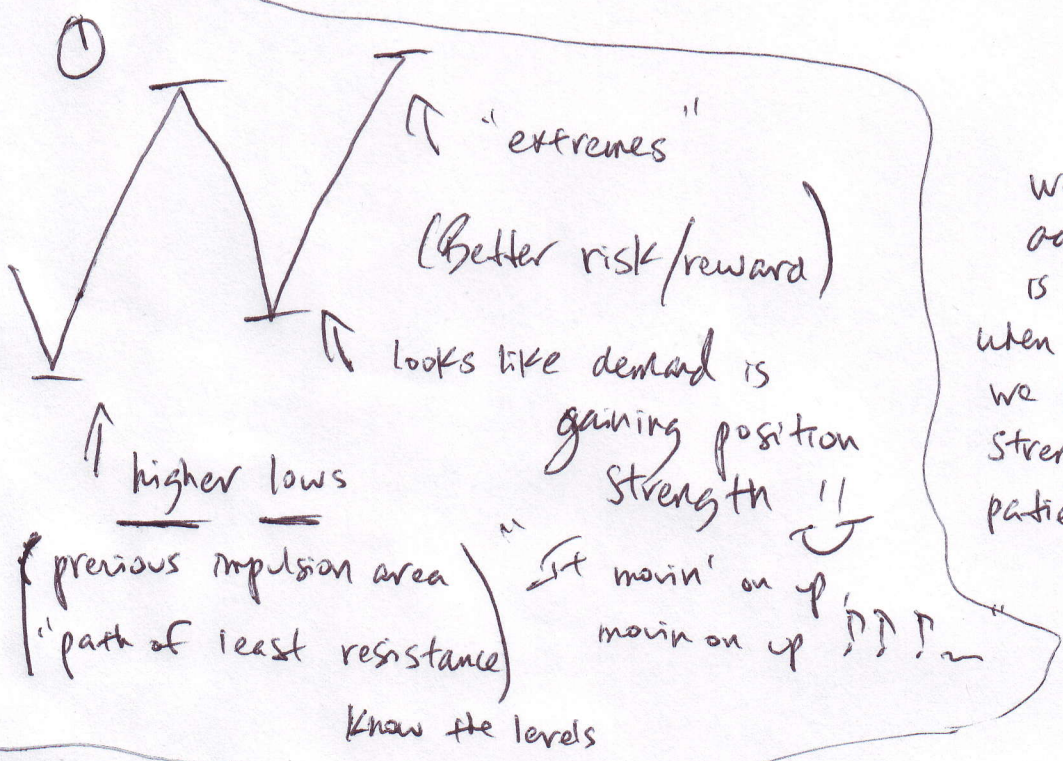 ①
"extremes"
(Better risk/reward)
looks like demand is
gaining position
strength !!
higher lows
(previous impulsion area
"path of least resistance)
"It movin' on up,
movin on up !!! "
Know the levels
is
when
we